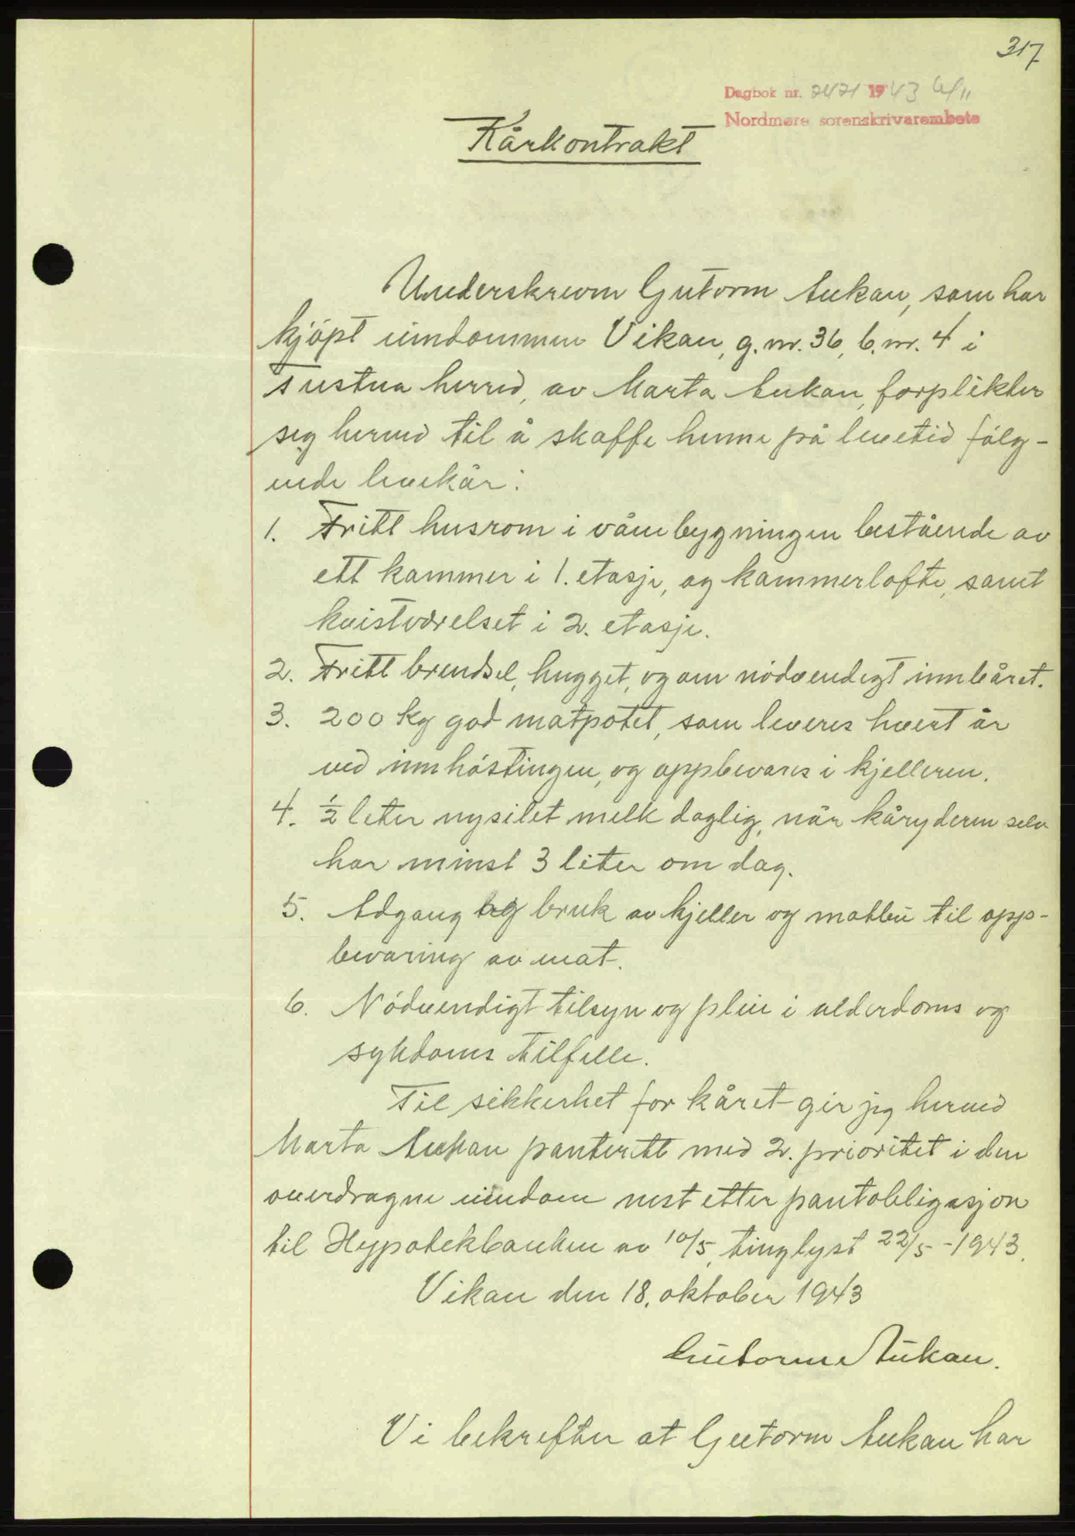 317
Dagbok nr. 2421 1943 6/11
Nordmøre sorenskrivarembete
Kårkontrakt
Underskreven Gutorm Aukan, som har
kjøpt eiendommen Vikan, g.nr. 36, b.nr. 4 i
Tustna herred, av Marta Aukan, forplikter
seg herved til å skaffe henne på levetid følg-
ende levekår:
1. Fritt husrom i våne bygningen bestående av
ett kammer i 1. etasje, og kammerlofte, samt
kvistværelset i 2. etasje.
2. Fritt brendsel, hugget, og om nødvendigt innbåret.
3. 200 kg god matpotet, som leveres hvert år
ved innhøstingen, og oppbevares i kjelleren.
4. ½ leter nysilet melk daglig, når kåryderen selv
har minst 3 liter om dag.
5. Adgang og bruk av kjeller og matbu til opp-
bevaring av mat.
6. Nødvendigt tilsyn og pleie i alderdoms og
sykdoms tilfelle.
Til sikkerhet for kåret gir jeg herved
Marta Aukan panterett med 2. prioritet i den
overdragne eiendom nest etter pantobligasjon
til Hypotekbanken av 10/5, tinglyst 22/5 - 1943.
Vikan den 18. oktober 1943
Gutorm Aukan.
Vi bekrefter at Gutorm Aukan har